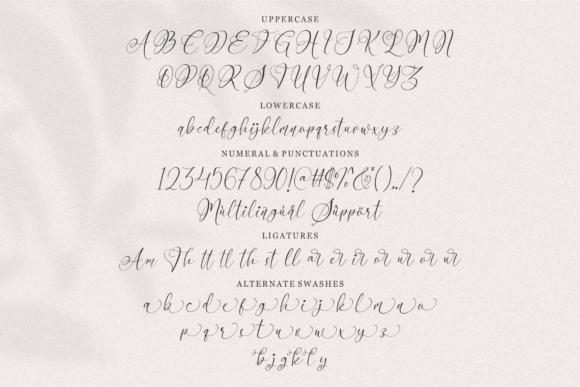 UPPERCASE
A B C D E F G H I J K L M N
O P Q R S T U V W X Y Z
LOWERCASE
abcdefghijklmnopqrstuvwxyz
NUMERAL & PUNCTUATIONS
1234567890!@#$%&*()../?
Mùltilingúál Sûppört
LIGATURES
Am Th tt tl th st ll ar er ir or ur or ur
ALTERNATE SWASHES
a b c d e f g h i j k l m n o
p q r s t u v w x y z
b j g k l y